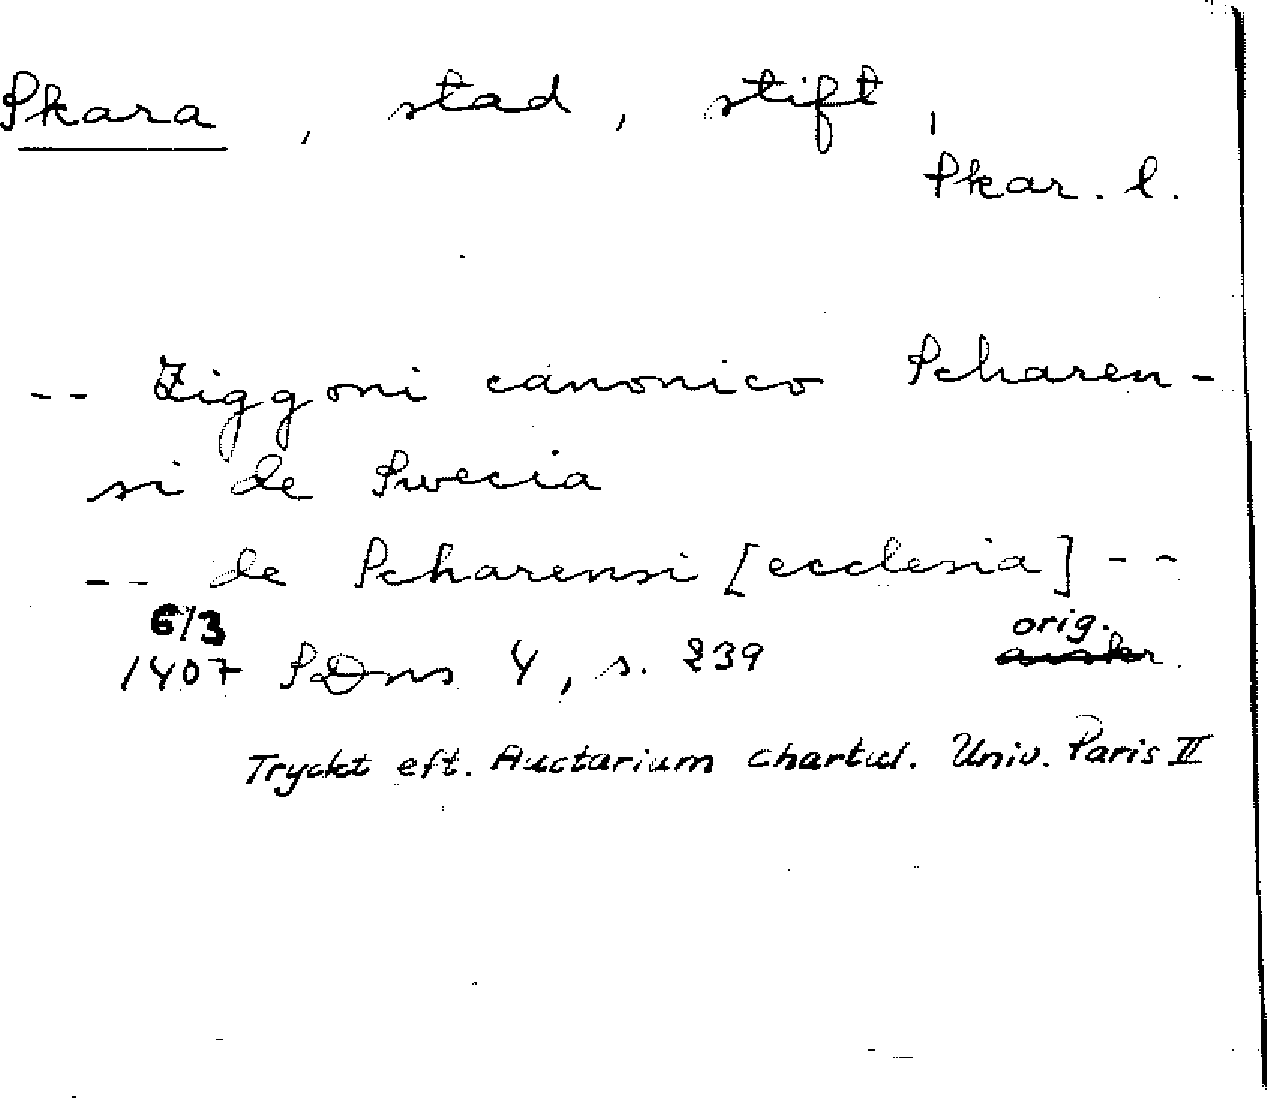 Skara, stad, stift,
Skar. l.
-- Ziggoni canonico Scharen-
si de Swecia
-- de Scharensi [ecclesia] --
6/3 orig.
1407 SDns 4, s. 239
Tryckt eft. Auctarium chartul. Univ. Paris II